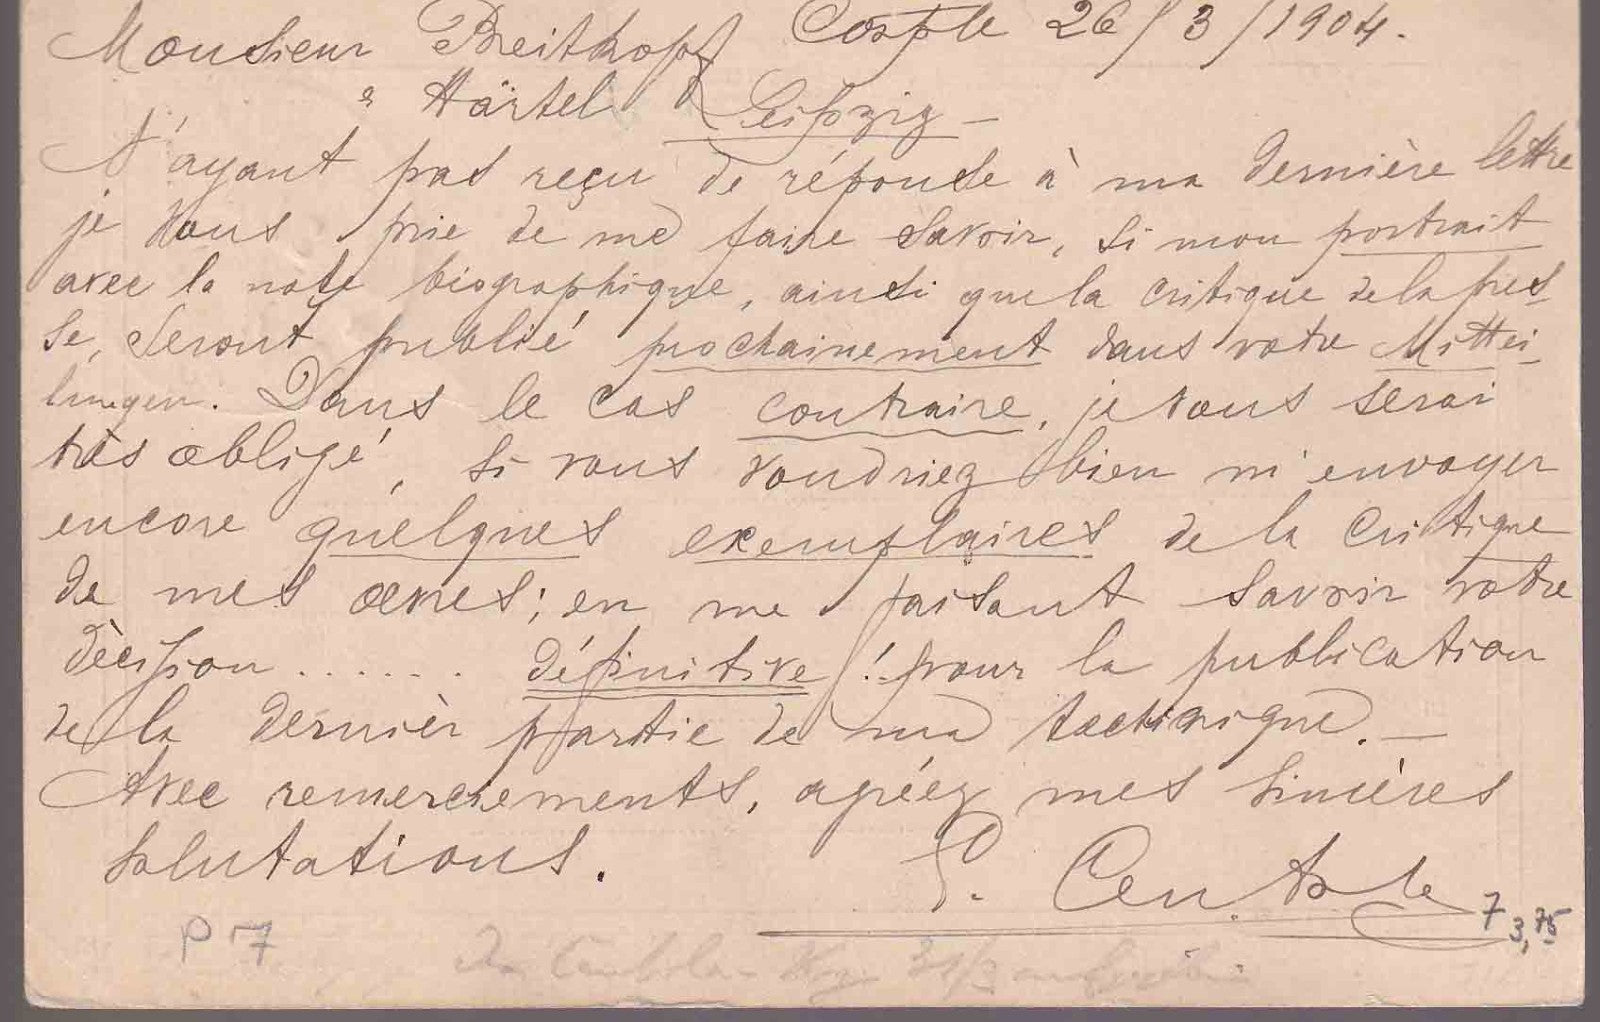 Monsieur Breitkopf Cosple 26/3/1904.
& Härtel Leipzig —
N'ayant pas reçu de réponse à ma dernière lettre
je vous prie de me faire savoir, si mon portrait
avec la note biographique, ainsi que la critique de la pres
se, seront publié prochainement dans votre Mittei
lungen. Dans le cas contraire, je vous serai
très obligé, si vous voudriez bien m'envoyer
encore quelques exemplaires de la critique
de mes œvres; en me faisant savoir votre
dècission ...... définitive! pour la publication
de la dernièr partie de ma technique. —
Avec remerciements, agréez mes sincères
salutations. P.
7 3,75
P 17